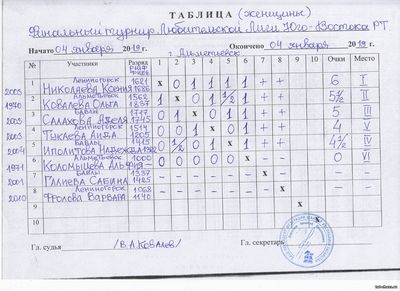 ТАБЛИЦА (женщины)
Финальный турнир Любительской Лиги Юго-Востока РТ
Начато 04 января 2019г. Окончено 04 января 2019г.
г. Альметьевск
№ Участники Разряд 1 2 3 4 5 6 7 8 9 10 Очки Место
2005 1 Лениногорск Николаева Ксения 1621 x 0 1 1 1 1 + + 6 I
1970 2 Альметьевск Ковалева Ольга 1562 1837 1 x 0 1 1/2 1 + + 5 1/2 II
2003 3 Бавлы Салахова Аделя 1717 1745 0 1 x 0 1 1 + + 5 III
2003 4 Лениногорск 1514 1205 0 0 1 x 0 1 + + 4 V
2004 5 Бавлы 1415 0 1/2 0 1 x 1 + + 4 1/2 IV
1971 6 Альметьевск 1000 0 0 0 0 0 x 0 VI
2001 7 Бавлы Галиева Сабина 1337 1425 x
2010 8 Лениногорск Фролова Варвара 1068 1140 x
9 x
10 x
Гл. судья /В.А.Ковалев/ Гл. секретарь